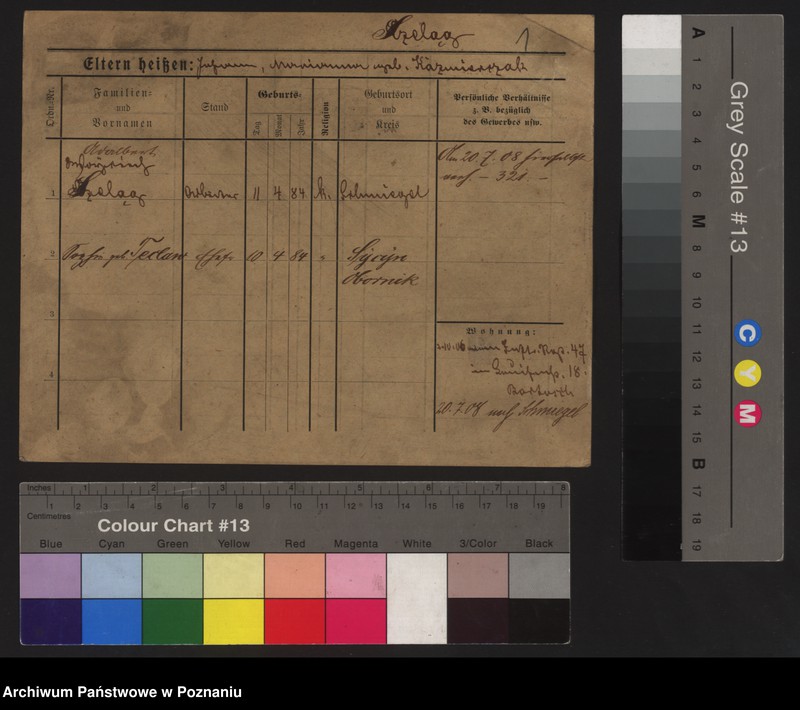 Szelag 1
Eltern heißen: Johann, Marianna geb. Kaźmierczak
Ordn.-Nr.
Familien- und Vornamen
Stand
Geburts-
Tag Monat Jahr
Religion
Geburtsort und Kreis
Persönliche Verhältnisse
z. B. bezüglich
des Gewerbes usw.
Adalbert
1 Szelag Arbeiter 11 4 84 k. Schmiegel
Am 20 7. 08
- 320. -
2 Sophie geb. Teclaw Ehefr 10 4 84 "
Obornik
3
4
Wohnung:
47
18
20.7.08 nach Schmiegel
Inches 1 2 3 4 5 6 7 8
Centimetres 1 2 3 4 5 6 7 8 9 10 11 12 13 14 15 16 17 18 19
Colour Chart #13
Blue Cyan Green Yellow Red Magenta White 3/Color Black
Grey Scale #13
A 1 2 3 4 5 6 M 8 9 10 11 12 13 14 15 B 17 18 19
C Y M
Archiwum Państwowe w Poznaniu